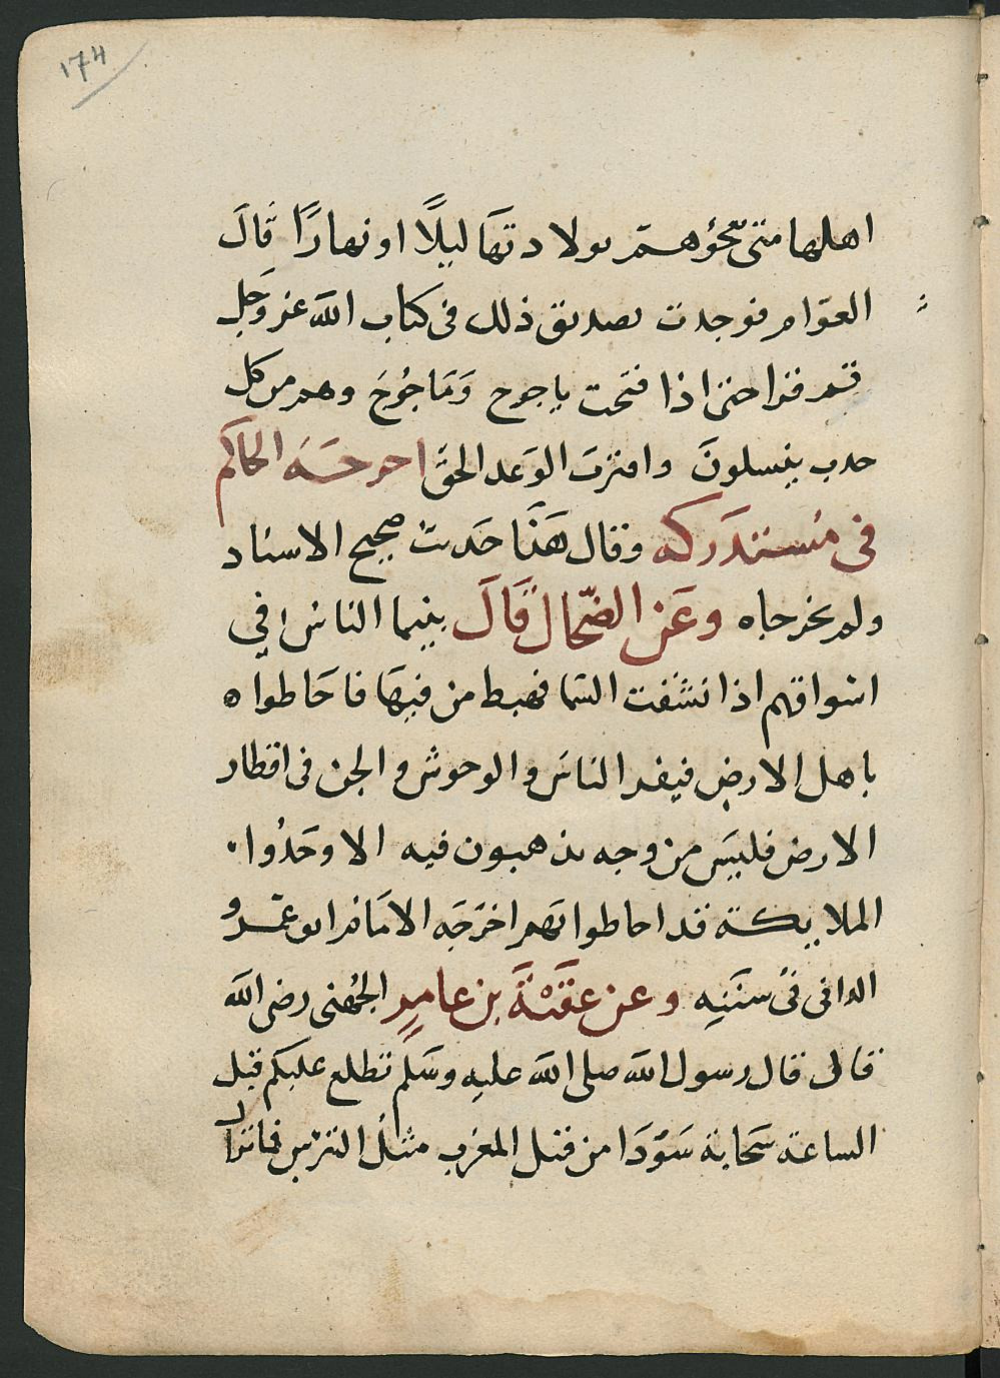 ١٧٤
اهلها متى تفجؤهم بولادتها ليلًا او نهارًا قالَ
العوّام فوجدت تصديق ذلك في كتاب الله عز وَجَل
ثم قرا حتى اذا فتحت ياجوج وَمَاجُوجَ وهم من كل
حدب ينسلونَ واقترَبَ الوَعد الحقّ اخرجَهُ الحاكم
في مُستدَركه وقال هَذَا حَديث صحيح الاسناد
ولم يخرجاه وعَن الضحّاك قَالَ بينما الناسُ في
اسواقهم اذا نشقت السّما فهبط من فيهَا فاحَاطوا ه
باهل الارض فيفر الناسَ والوحوش والجن في اقطار
الارض فليسَ من وجه يذهبون فيه الا وَجَدُوا
الملاييكة قد احاطوا بهم اخرَجَه الامَام ابو عَمرو
الداني في سنَنِه وعن عقبَةَ بن عامرٍ الجُهنى رضى الله
قال قال رسول الله صلى الله عليه وسَلم تطلع عليكم قبل
الساعة سَحابة سَوْدَا من قبل المغرب مثل الترس فماتزال